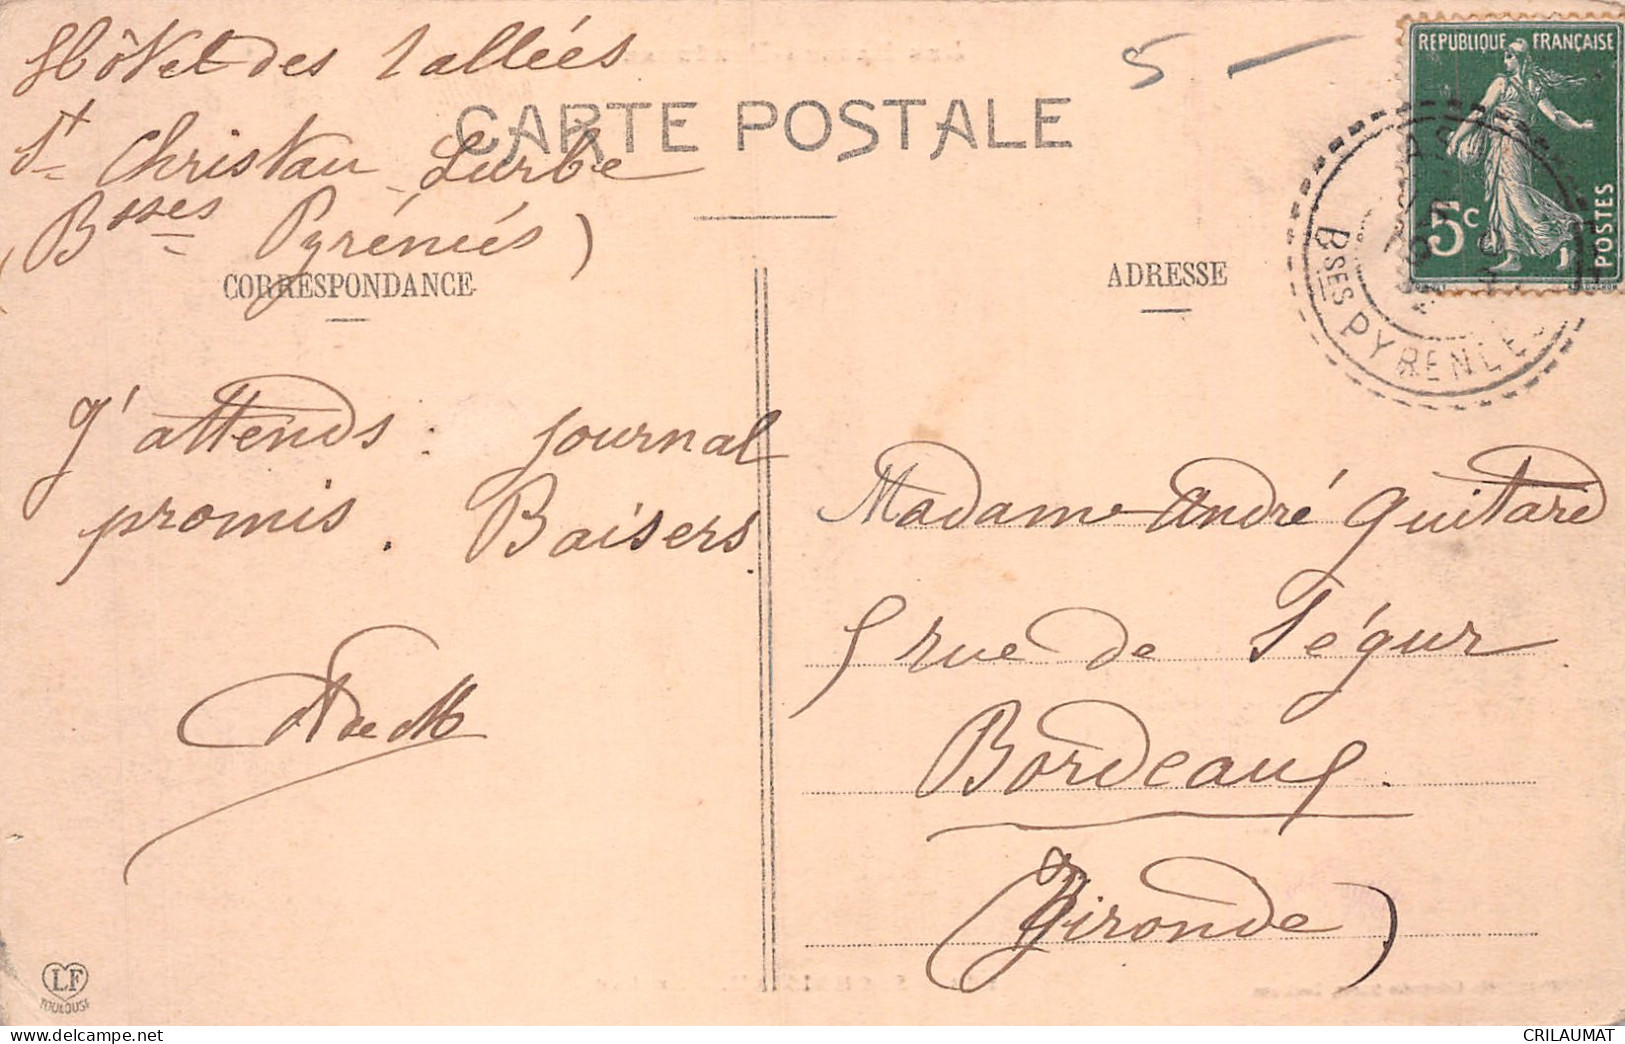 Hôtel des Vallées
St Christau Lurbe
(Bsses Pyrénées)
CARTE POSTALE
5 -
REPUBLIQUE FRANÇAISE
5c
POSTES
Bses PYRENEES
CORRESPONDANCE
ADRESSE
J'attends journal
promis. Baisers.
Madame André Guitard
5 rue de Ségur
Bordeaux.
(Gironde)
LF
TOULOUSE
CRILAUMAT